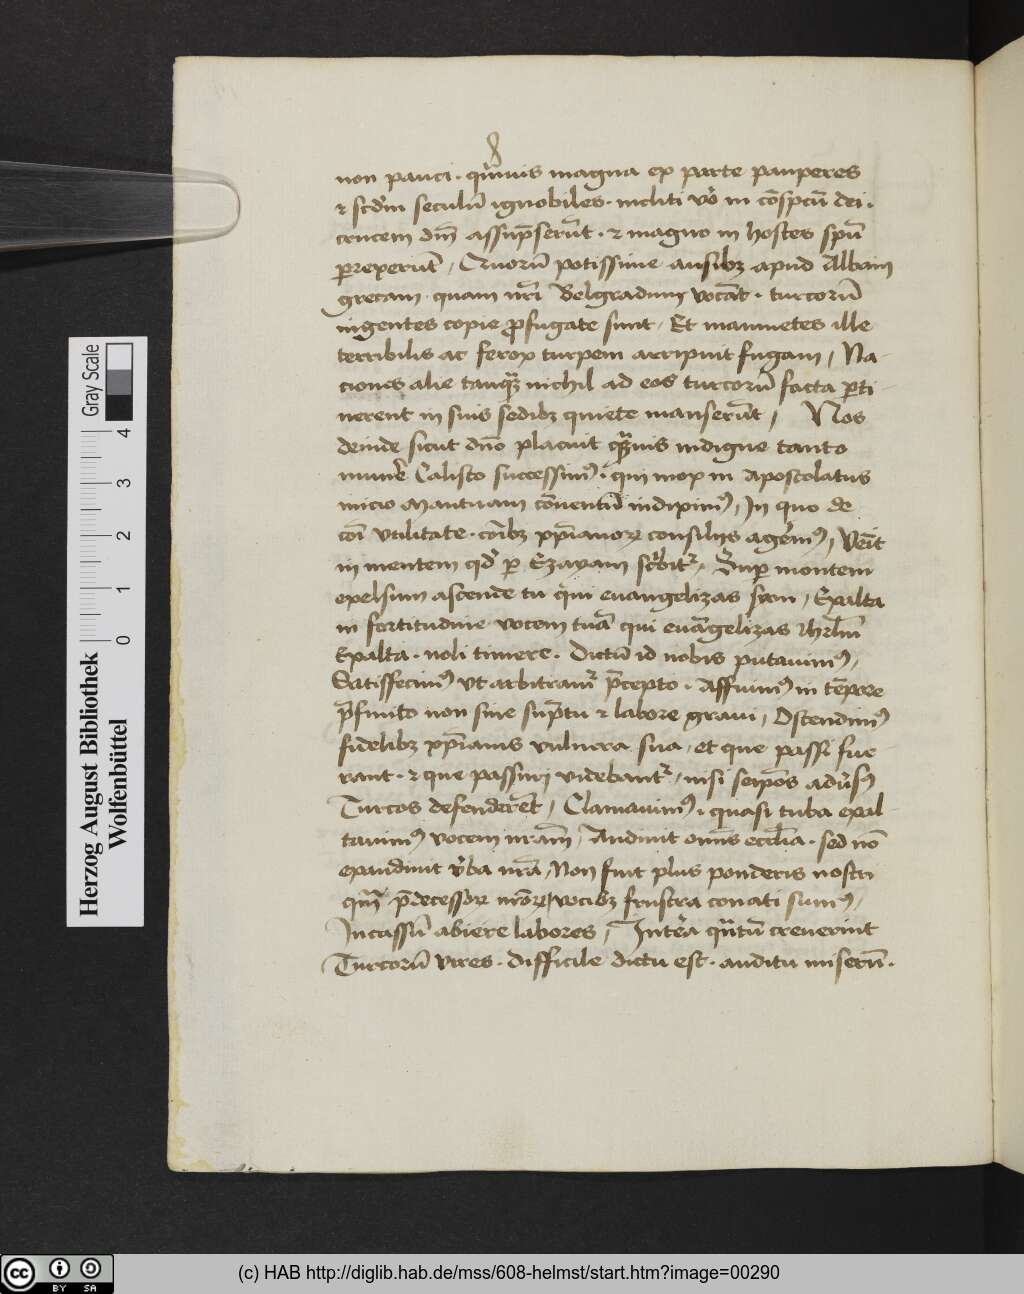 non pauci · qͣmuis magna ex parte pauperes
⁊ scd̓m seculū ignobiles · incliti vō in cōspcū dei ·
crucem dnī assūpserūt · ⁊ magno in hostes spū
ꝑrexerūt / Quorū potissime ausibꝫ apud Albam
grecam quam nrī Belgradum vocāt · turcorū
ingentes copie ꝓfugate sunt / Et maumetes ille
terribilis ac ferox turpem arripuit fugam / Na-
ciones alie tanqꝫ nichil ad eos turcorū facta ꝑti-
nerent in suis sedibꝫ quiete manserūt / Nos
deinde sicut dnō placuit qͣmuis indigne tanto
munē Calisto successimꝰ · qui mox in apostolatus
inicio Mantuam cōuentū indiximꝰ / In quo de
coī vtilitate · coībꝫ xp̄ianoꝝ consilijs agēmꝰ / Venīt
in mentem qd̓ ꝑ Ezayam scͥbitᷣ / Suꝑ montem
exelsum ascende tu qui euangelizas syon / Exalta
in fortitudine vocem tuā qui euāgelizas Ihrl̄m
Exalta · noli timere · Dictū id nobis putauimꝰ /
Satisfecimꝰ vt arbitramᷣ p̄cepto · Affuimꝰ in tēpore
p̄finito non sine sūptu ⁊ labore graui / Ostendimꝰ
fidelibꝫ xp̄ianis vulnera sua / et que passi fue-
rant · ⁊ que passuri videbantᷣ / nisi seip̄os adūsꝰ
Turcos defenderēt / Clamauimꝰ · quasi tuba exal-
tauimꝰ vocem nrām / Audiuit om̄is eccl̄ia · sed nō
exaudiuit v̓ba nrā / Non fuit plus ponderis nostri
qm̄ p̄decessoꝝ nrōꝝ / vocibꝫ frustra conati sumꝰ /
Incassū abiere labores / Interea qͣntū creuerint
Turcorū vires · difficile dictu est · auditu miserū ·
Herzog August Bibliothek
Wolfenbüttel
Gray Scale
0 1 2 3 4
(c) HAB http://diglib.hab.de/mss/608-helmst/start.htm?image=00290
cc BY SA